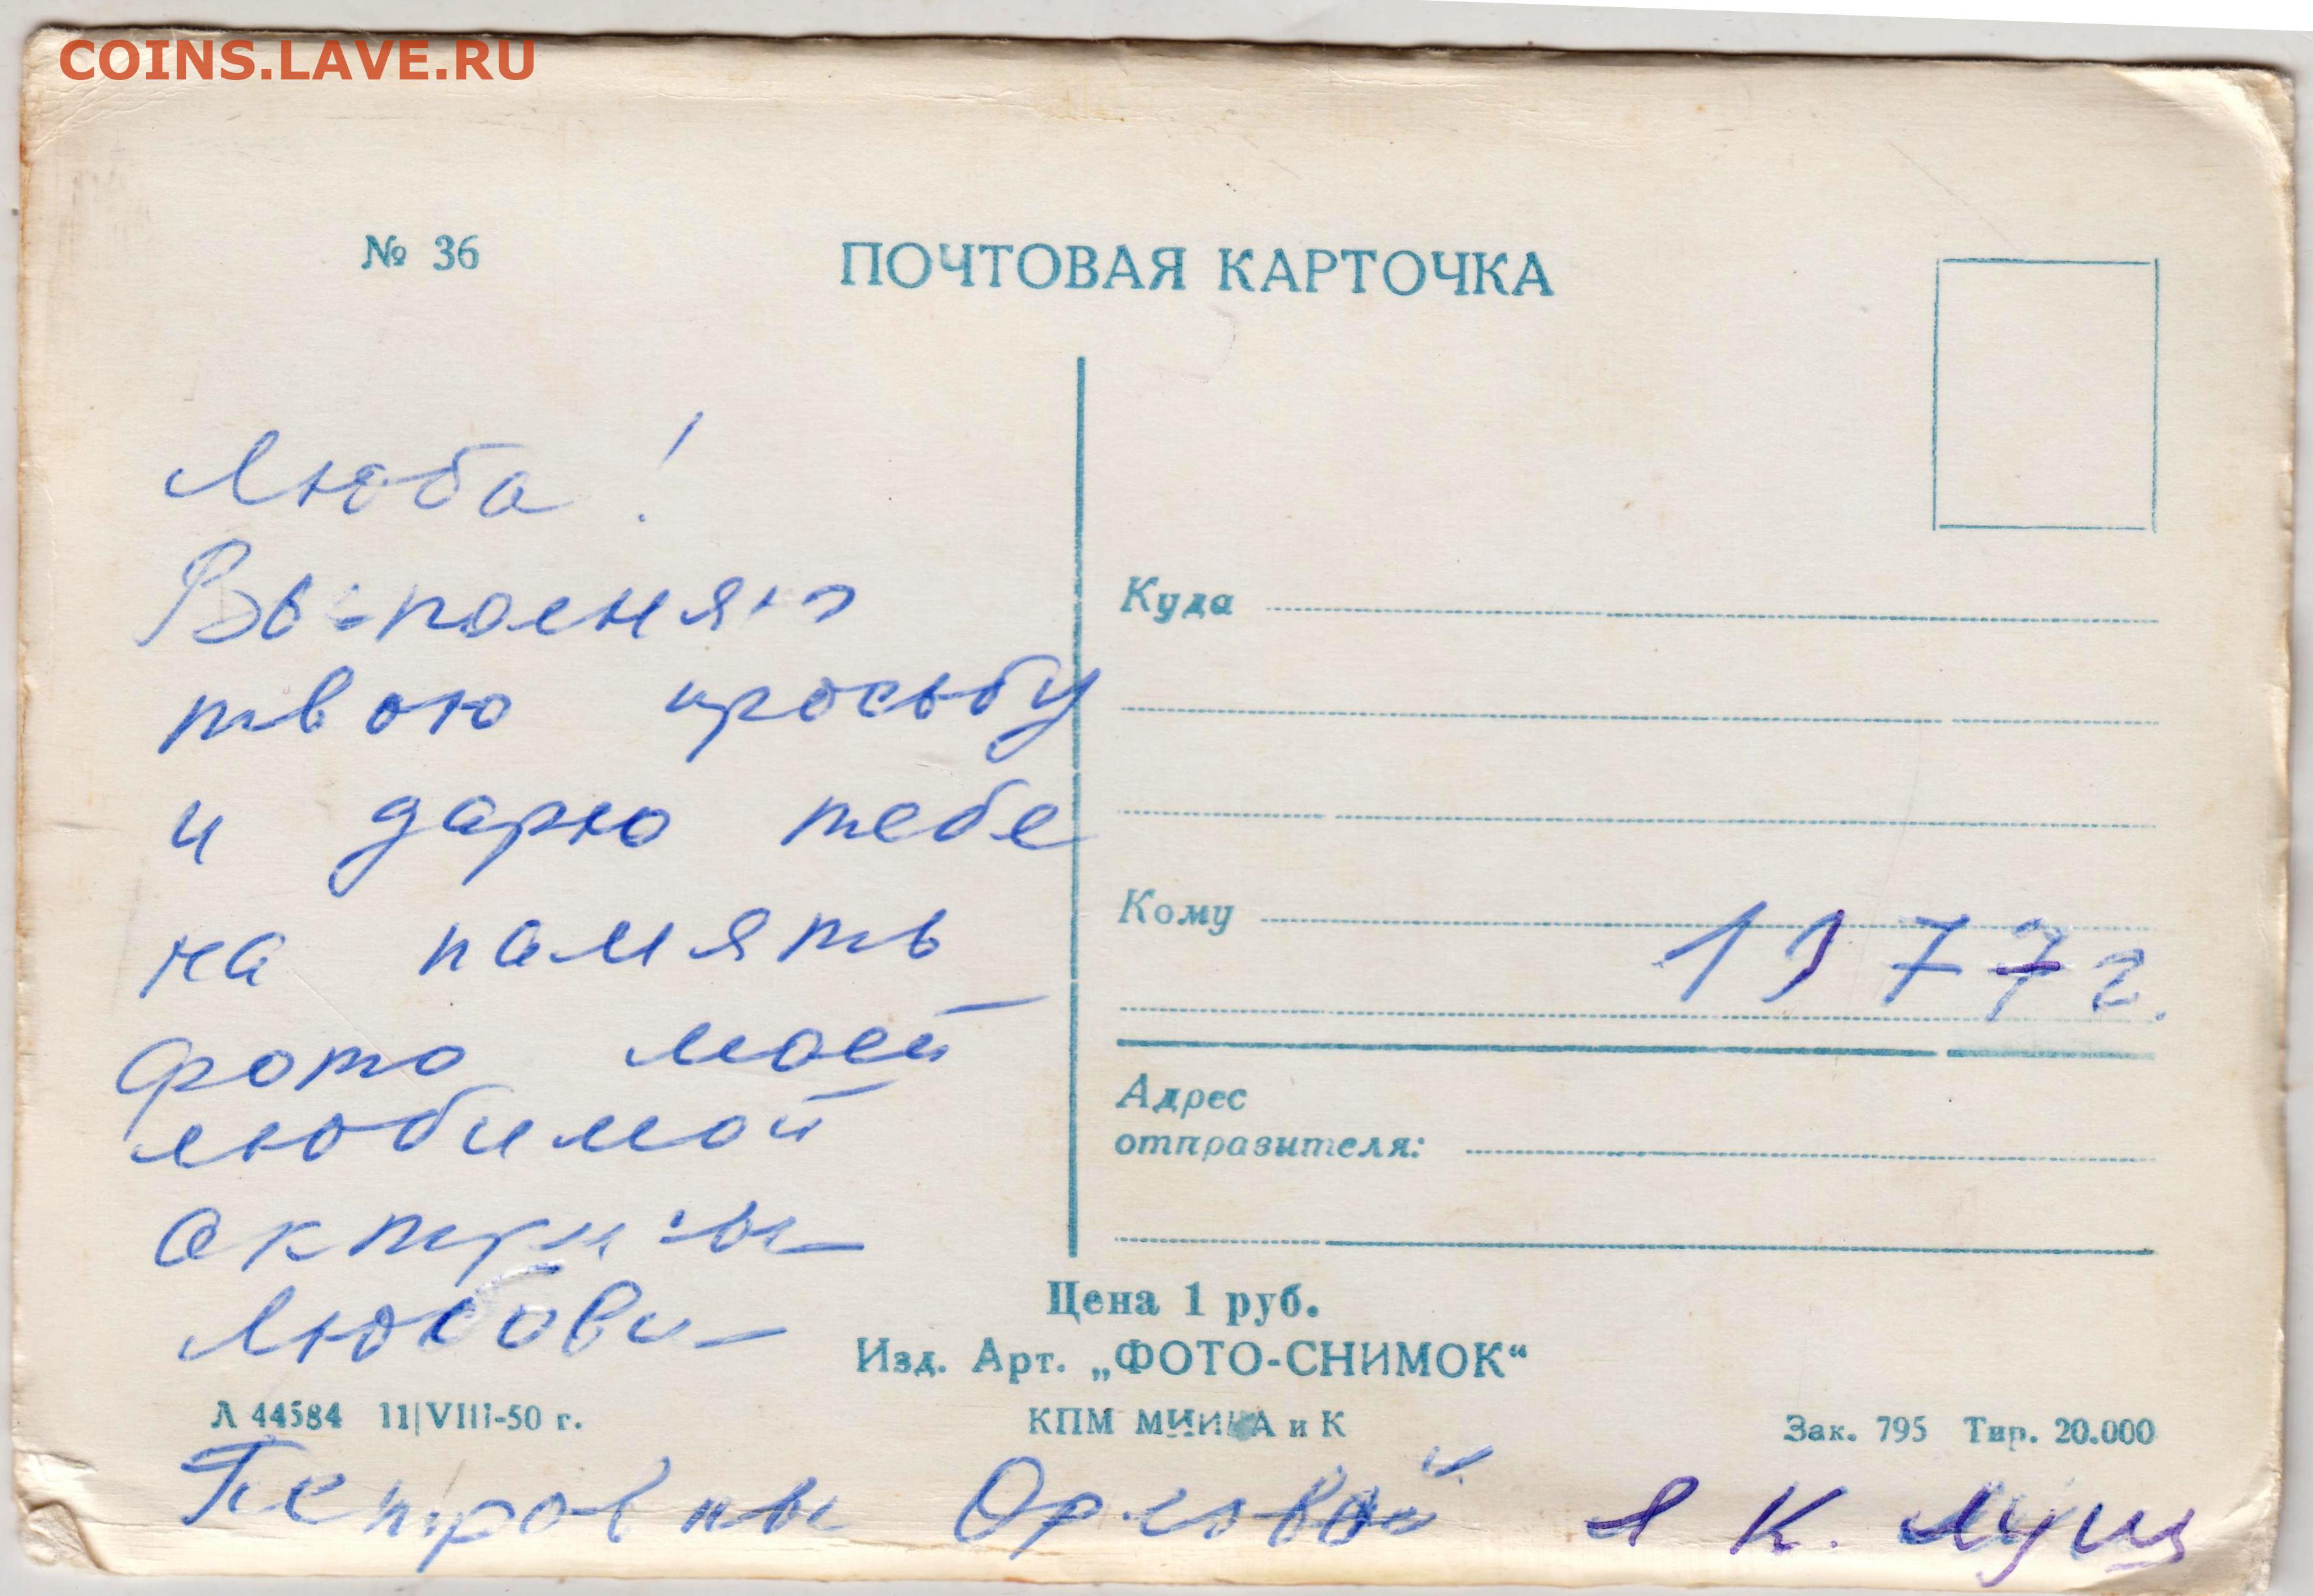 COINS.LAVE.RU
№ 36
ПОЧТОВАЯ КАРТОЧКА
Люба!
Выполняю
твою просьбу
и дарю тебе
на память
фото моей
любимой
актрисы
Любови
Петровны Орловой
Куда
Кому
1977 г.
Адрес
отправителя:
Цена 1 руб.
Изд. Арт. „ФОТО-СНИМОК“
Л 44584 11|VIII-50 г.
КПМ и К
Зак. 795 Тир. 20.000